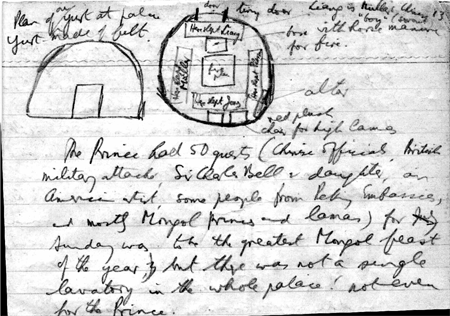 Plan of yurt at palace
yurt made of felt.
door
Liang is Mullah Liang's
"boy" (servant)
box with horse manure
for fire.
Honble Liang
altar
red plush
chair for high lamas
The Prince had 50 guests (Chinese officials British
military attache Sir Charles Bell & daughter, an
American artist, some people from Peking Embassies,
and mostly Mongol princes and lamas) for
Sunday was to be the greatest Mongol feast
of the year, but there was not a single
lavatory in the whole palace! not even
for the Prince.